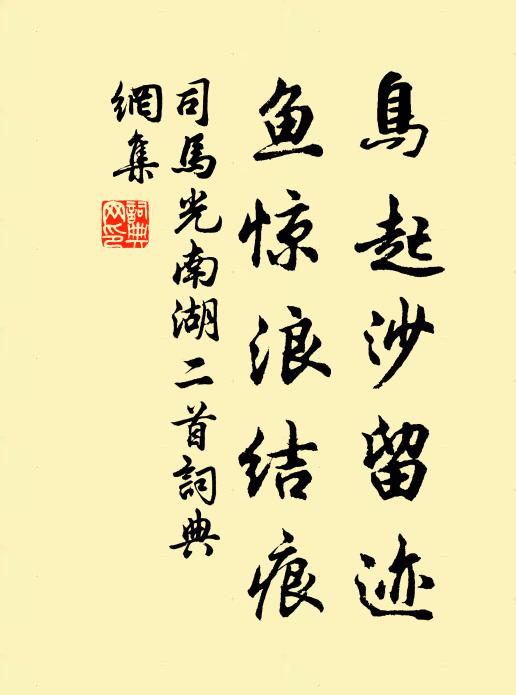 鳥起沙留迹
鱼惊浪结痕
司馬光南湖二首詞典
網集
詞典
网印